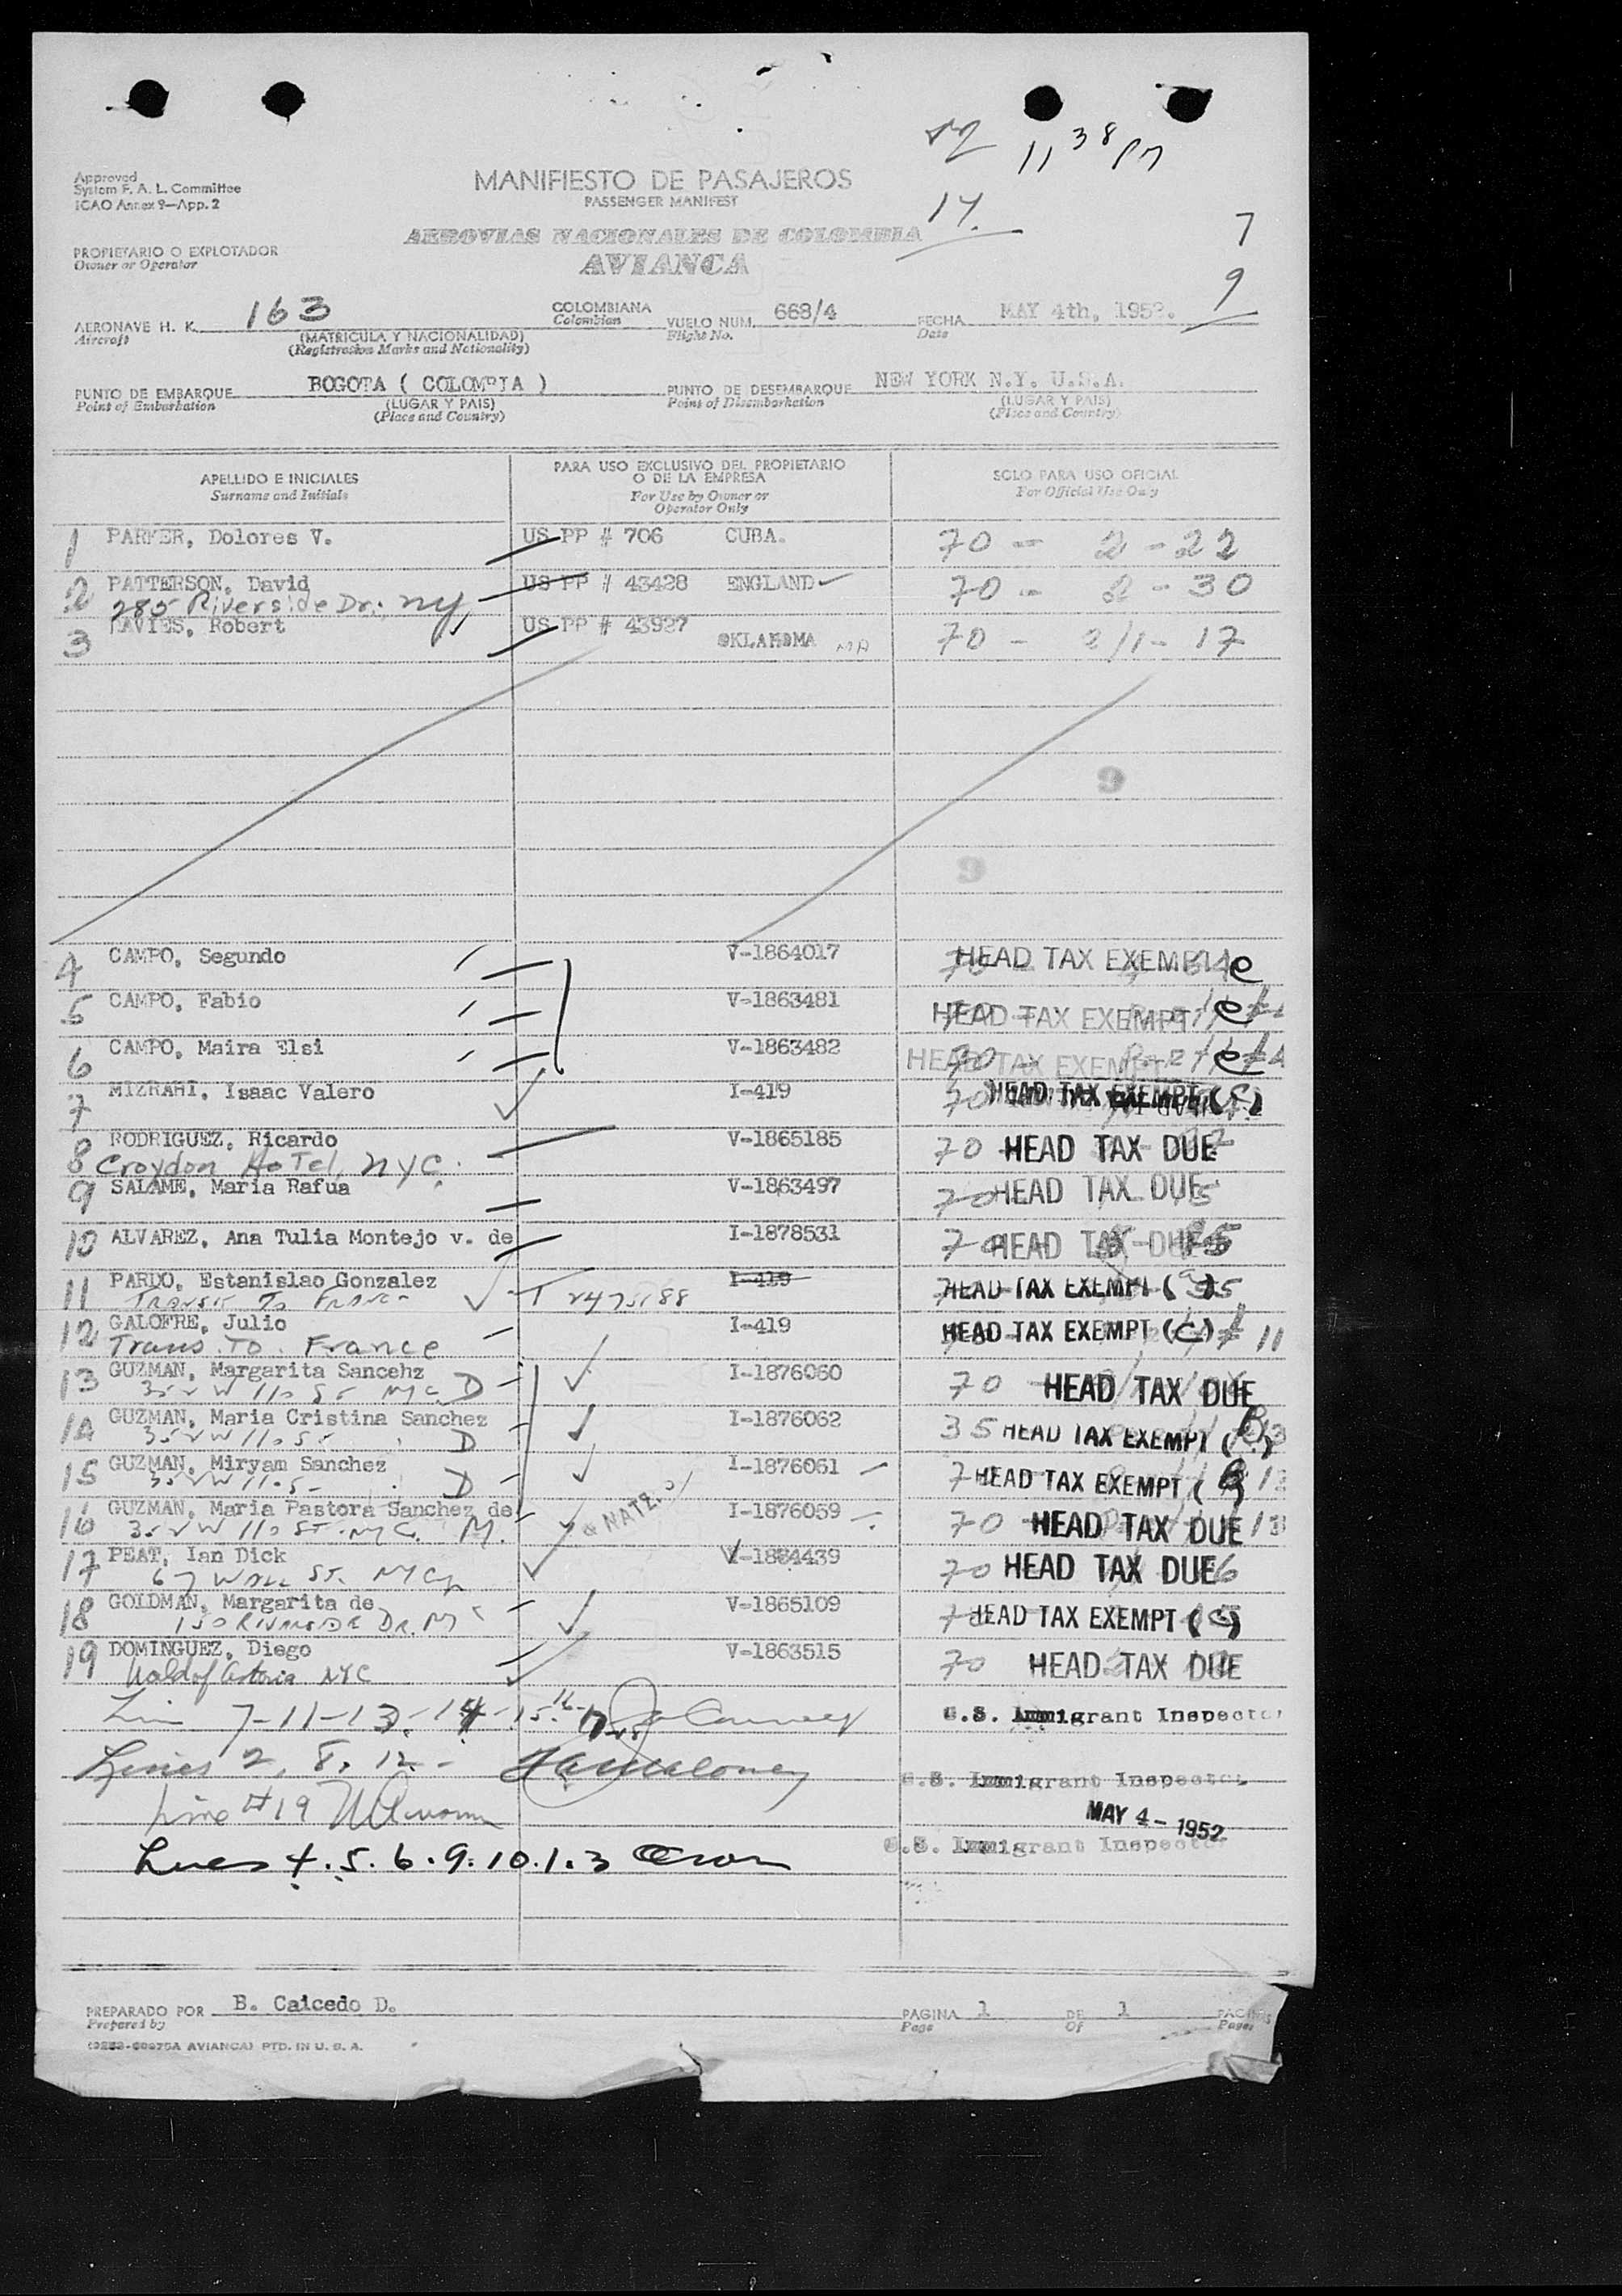 11 38 PM
Approved
System F. A. L. Committee
ICAO Annex 9—App. 2
MANIFIESTO DE PASAJEROS
PASSENGER MANIFEST
14.
7
9
AEROVIAS NACIONALES DE COLOMBIA
AVIANCA
PROPIETARIO O EXPLOTADOR
Owner or Operator
AERONAVE H. K. 163 COLOMBIANA VUELO NUM. 668/4 FECHA MAY 4th, 1952.
Aircraft (MATRICULA Y NACIONALIDAD) Colombian Flight No. Date
(Registration Marks and Nationality)
PUNTO DE EMBARQUE BOGOTA ( COLOMBIA ) PUNTO DE DESEMBARQUE NEW YORK N.Y. U.S.A.
Point of Embarkation (LUGAR Y PAIS) Point of Disembarkation (LUGAR Y PAIS)
(Place and Country) (Place and Country)
APELLIDO E INICIALES PARA USO EXCLUSIVO DEL PROPIETARIO O DE LA EMPRESA SOLO PARA USO OFICIAL
Surname and Initials For Use by Owner or Operator Only For Official Use Only
1 PARKER, Dolores V. US PP # 706 CUBA. 70 - 2 - 22
2 PATTERSON, David US PP # 43428 ENGLAND 70 - 2 - 30
285 Riverside Dr. NY
3 DAVIES, Robert US PP # 43927 OKLAHOMA 70 - 2/1 - 17
9
9
4 CAMPO, Segundo V-1864017 HEAD TAX EXEMPT e
5 CAMPO, Fabio V-1863481 HEAD TAX EXEMPT e
6 CAMPO, Maira Elsi V-1863482 HEAD TAX EXEMPT e
7 MIZRAHI, Isaac Valero I-419 70 HEAD TAX EXEMPT (C)
8 RODRIGUEZ, Ricardo V-1865185 70 HEAD TAX DUE
Croydon Hotel, NYC.
9 SALAME, Maria Rafua V-1863497 70 HEAD TAX DUE
10 ALVAREZ, Ana Tulia Montejo v. de I-1878531 70 HEAD TAX DUE
11 PARDO, Estanislao Gonzalez I-419 HEAD TAX EXEMPT
Transit To France
12 GALOFRE, Julio I-419 HEAD TAX EXEMPT (C) 11
Trans. To. France
13 GUZMAN, Margarita Sancehz I-1876060 70 HEAD TAX DUE
352 W 110 St NYC D
14 GUZMAN, Maria Cristina Sanchez I-1876062 35 HEAD TAX EXEMPT
352 W 110 St D
15 GUZMAN, Miryam Sanchez I-1876061 HEAD TAX EXEMPT
352 W 110 St D
16 GUZMAN, Maria Pastora Sanchez de I-1876059 70 HEAD TAX DUE
352 W 110 ST. NYC. M.
17 PEAT, Ian Dick 70 HEAD TAX DUE
67 Wall St. NYC
18 GOLDMAN, Margarita de V-1865109 HEAD TAX EXEMPT (C)
150 RIVERSIDE DR. NYC
19 DOMINGUEZ, Diego V-1863515 70 HEAD TAX DUE
Waldorf Astoria NYC
7-11-13-14-15-16-17-18 U.S. Immigrant Inspector
Lines 2, 8, 12 - U.S. Immigrant Inspector
Line #19
MAY 4 - 1952
Lines 4.5.6.9.10.1.3 U.S. Immigrant Inspector
PREPARADO POR B. Caicedo D. PAGINA 1 DE 1 PAGINAS
Prepared by Page Of Pages
AVIANCA) PTD. IN U. S. A.